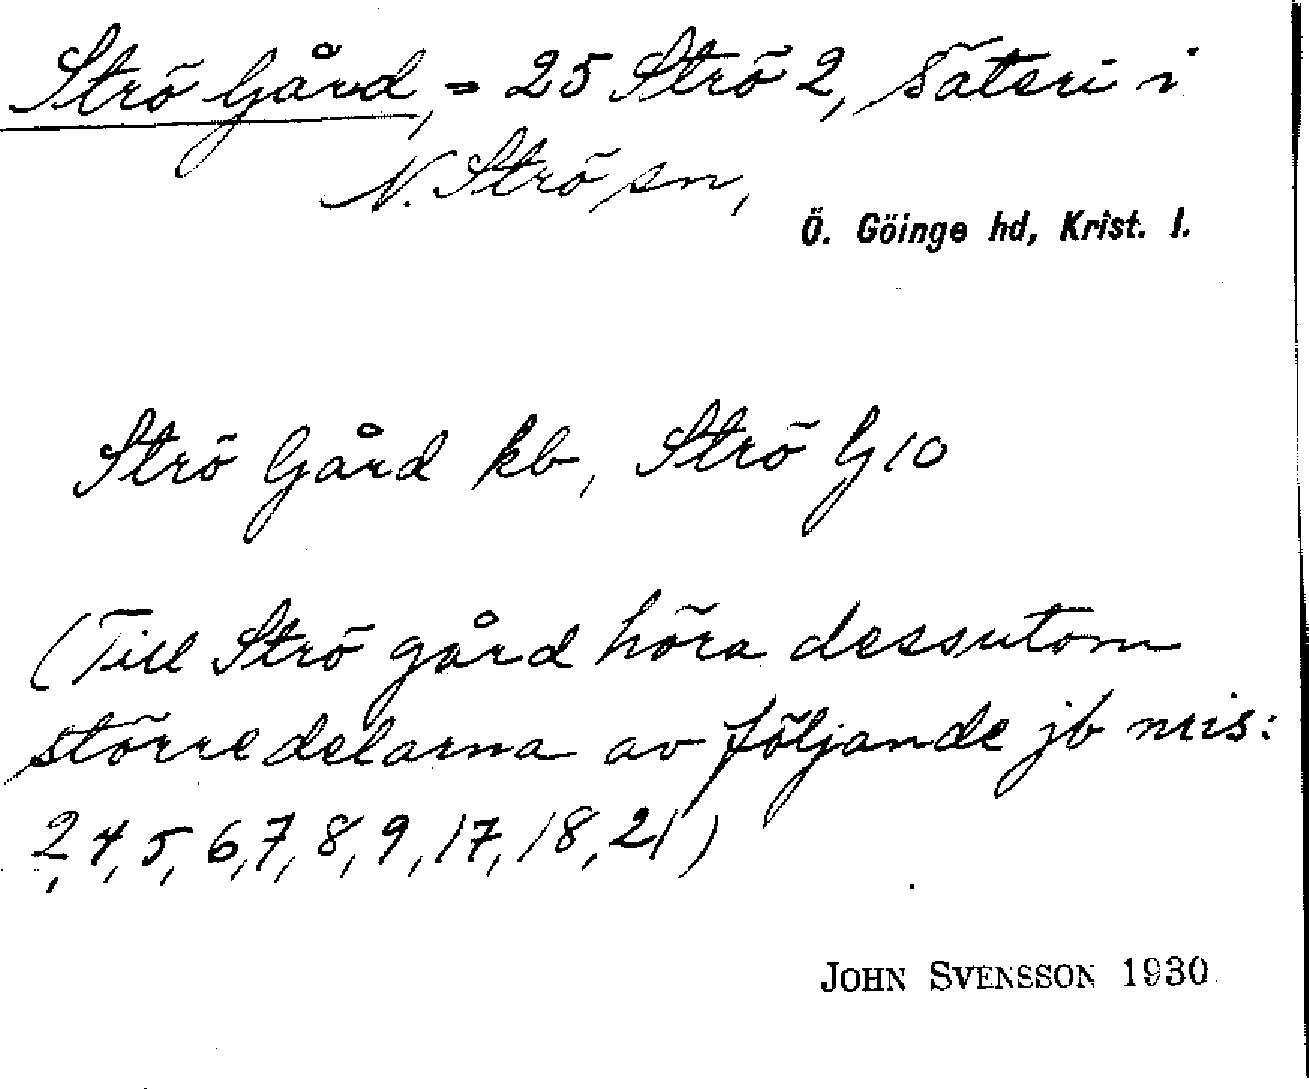 Strö Gård, = 25 Strö 2, Säteri i
N. Strö sn,
Ö. Göinge hd, Krist. l.
Strö Gård kb, Strö G 10
(Till Strö gård höra dessutom
större delarna av följande jb nris:
2, 4, 5, 6, 7, 8, 9, 17, 18, 21)
JOHN SVENSSON 1930